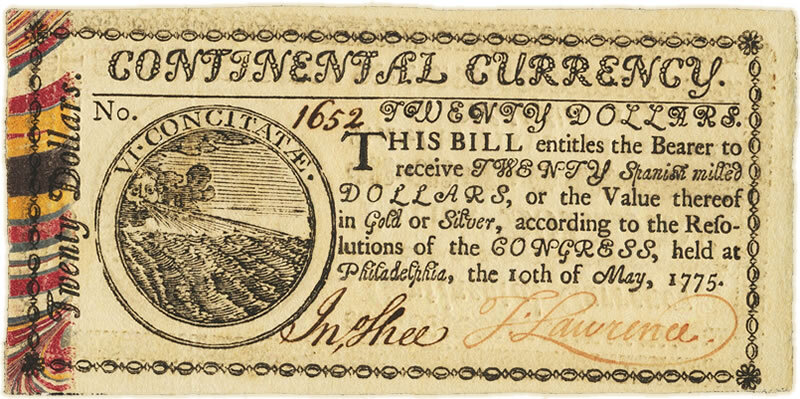 CONTINENTAL CURRENCY.
Twenty Dollars.
No. 1652 TWENTY DOLLARS.
VI CONCITATÆ.
THIS BILL entitles the Bearer to
receive TWENTY Spaniſh milled
DOLLARS, or the Value thereof
in Gold or Silver, according to the Reſo-
lutions of the CONGRESS, held at
Philadelphia, the 10th of May, 1775.
Jno Shee T. Lawrence.